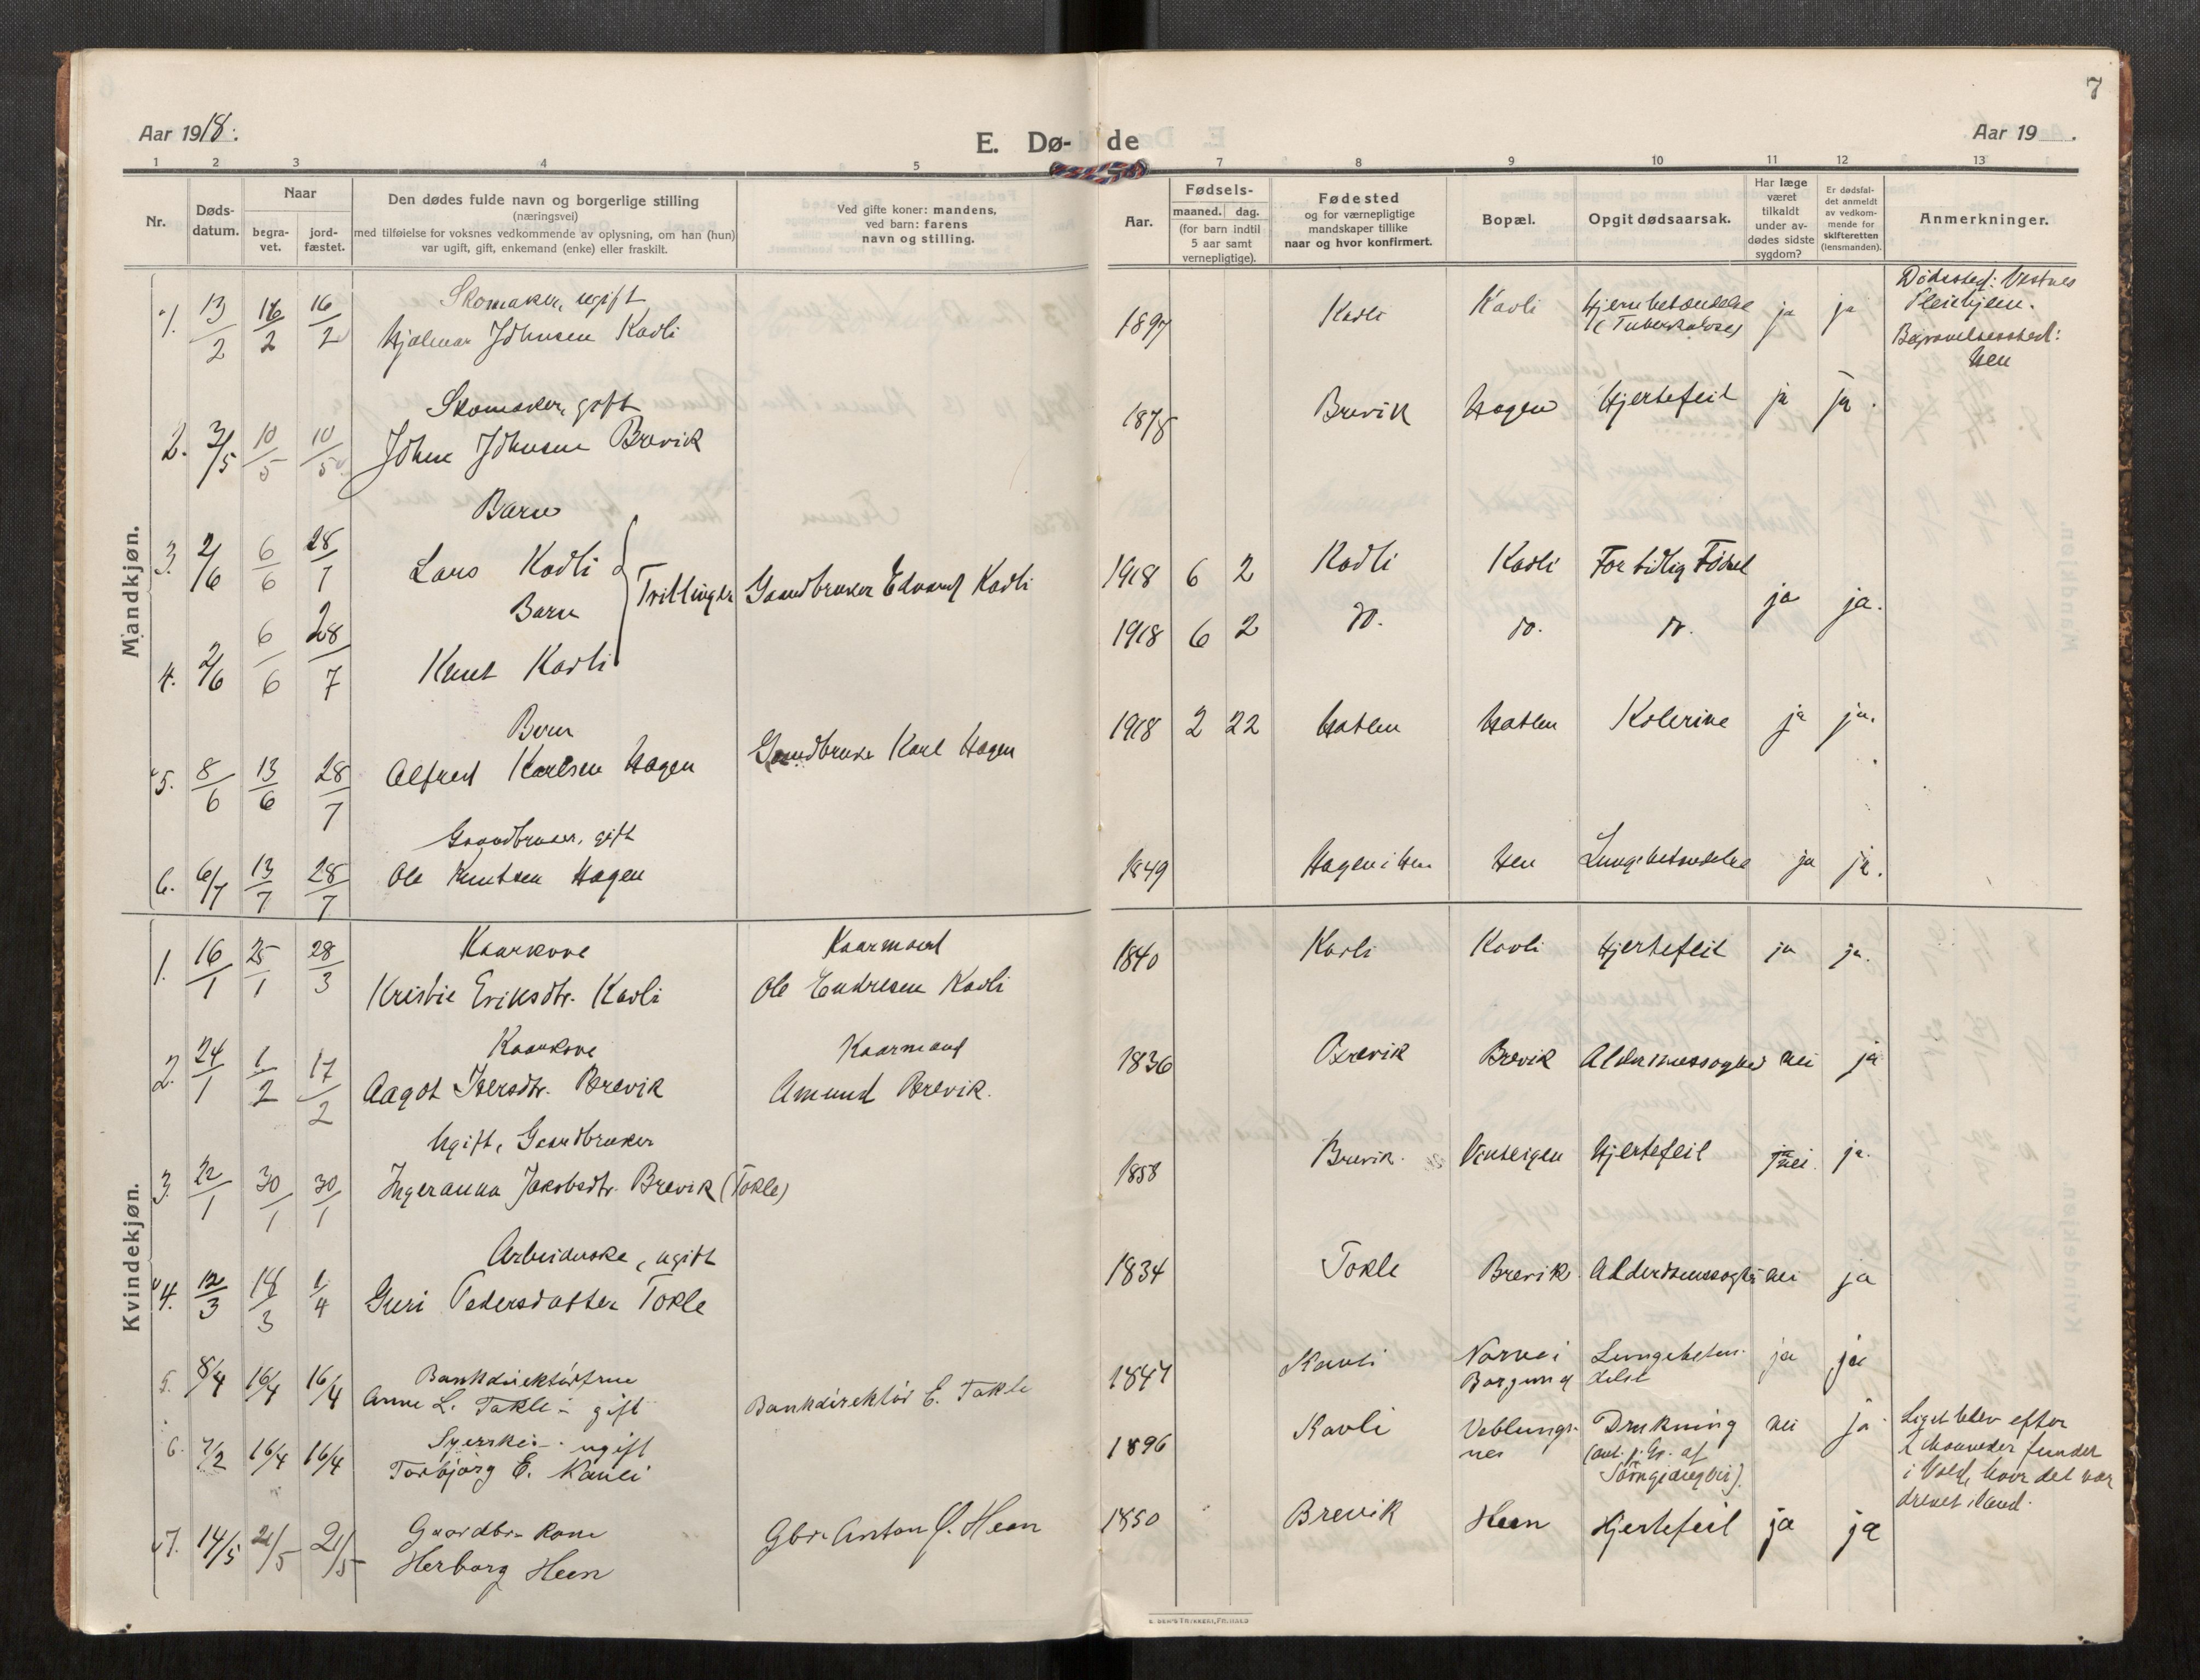 7
Aar 1918.
E. Dø- de
Aar 19 .
1 2 3 4 5 7 8 9 10 11 12 13
Nr.
Døds-
datum.
Naar
begra-
vet.
jord-
fæstet.
Den dødes fulde navn og borgerlige stilling
(næringsvei)
med tilføielse for voksnes vedkommende av oplysning, om han (hun)
var ugift, gift, enkemand (enke) eller fraskilt.
Ved gifte koner: mandens,
ved barn: farens
navn og stilling.
Aar.
Fødsels-
maaned. dag.
(for barn indtil
5 aar samt
vernepligtige).
Fødested
og for værnepligtige
mandskaper tillike
naar og hvor konfirmert.
Bopæl.
Opgit dødsaarsak.
Har læge
været
tilkaldt
under av-
dødes sidste
sygdom?
Er dødsfal-
det anmeldt
av vedkom-
mende for
skifteretten
(lensmanden).
Anmerkninger.
Mandkjøn.
Skomaker, ugift
1. 13/2 16/2 16/2 Hjalmar Johnsen Kavli 1897 Kavli Kavli Hjernebetændelse
(Tuberkulose) ja ja
Dødssted: Vestnes
Pleiehjem.
Begravelsessted:
Hen
Skomaker, gift
2. 3/5 10/5 10/5 John Johnsen Brevik 1878 Brevik Hagen Hjertefeil ja ja.
Barn
3. 2/6 6/6 28/7 Lars Kavli Trillinger Gaardbruker Edvard Kavli 1918 6 2 Kavli Kavli For tidlig Fødsel ja ja.
Barn
4. 2/6 6/6 28/7 Knut Kavli 1918 6 2 do. do. do.
Barn
5. 8/6 13/6 28/7 Alfred Karlsen Hagen Gaardbruker Karl Hagen 1918 2 22 Hatlen Hatlen Kolerine ja ja.
Gaardbruker, gift
6. 6/7 13/7 28/7 Ole Knutsen Hagen 1849 Hagen i Hen Hen Lungebetændelse ja ja.
Kvindekjøn.
Kaarkone Kaarmand
1. 16/1 25/1 28/3 Kristie Eriksdtr. Kavli Ole Endresen Kavli 1840 Kavli Kavli Hjertefeil ja ja.
Kaarkone Kaarmand
2. 24/1 1/2 17/2 Aagot Iversdtr. Brevik Amund Brevik. 1836 Brevik Brevik Alderdomssvaghed nei ja
Ugift, Gaardbruker
3. 22/1 30/1 30/1 Ingeranna Jakobsdtr. Brevik (Tokle) 1858 Brevik. Hjertefeil nei. ja.
Arbeiderske, ugift
4. 12/3 18/3 1/4 Guri Pedersdatter Tokle 1834 Tokle Brevik Alderdomssvagh. nei ja
5. 8/4 16/4 16/4 Bankdirektørfrue
Anne L. Takle - gift Bankdirektør E. Takle 1847 Kavli Norvei
Borgund Lungebeten-
delse ja ja
6. 7/2 16/4 16/4 Syerske - ugift
Torbjørg E. Kavli 1896 Kavli Veblungs-
nes Drukning
nei ja Liget blev efter
2 maaneder funden
i Vold, hvor det var
drevet iland.
7. 14/5 21/5 21/5 Gaardbr. kone
Herborg Heen Gbr. Anton O. Heen 1850 Brevik Heen Hjertefeil ja ja